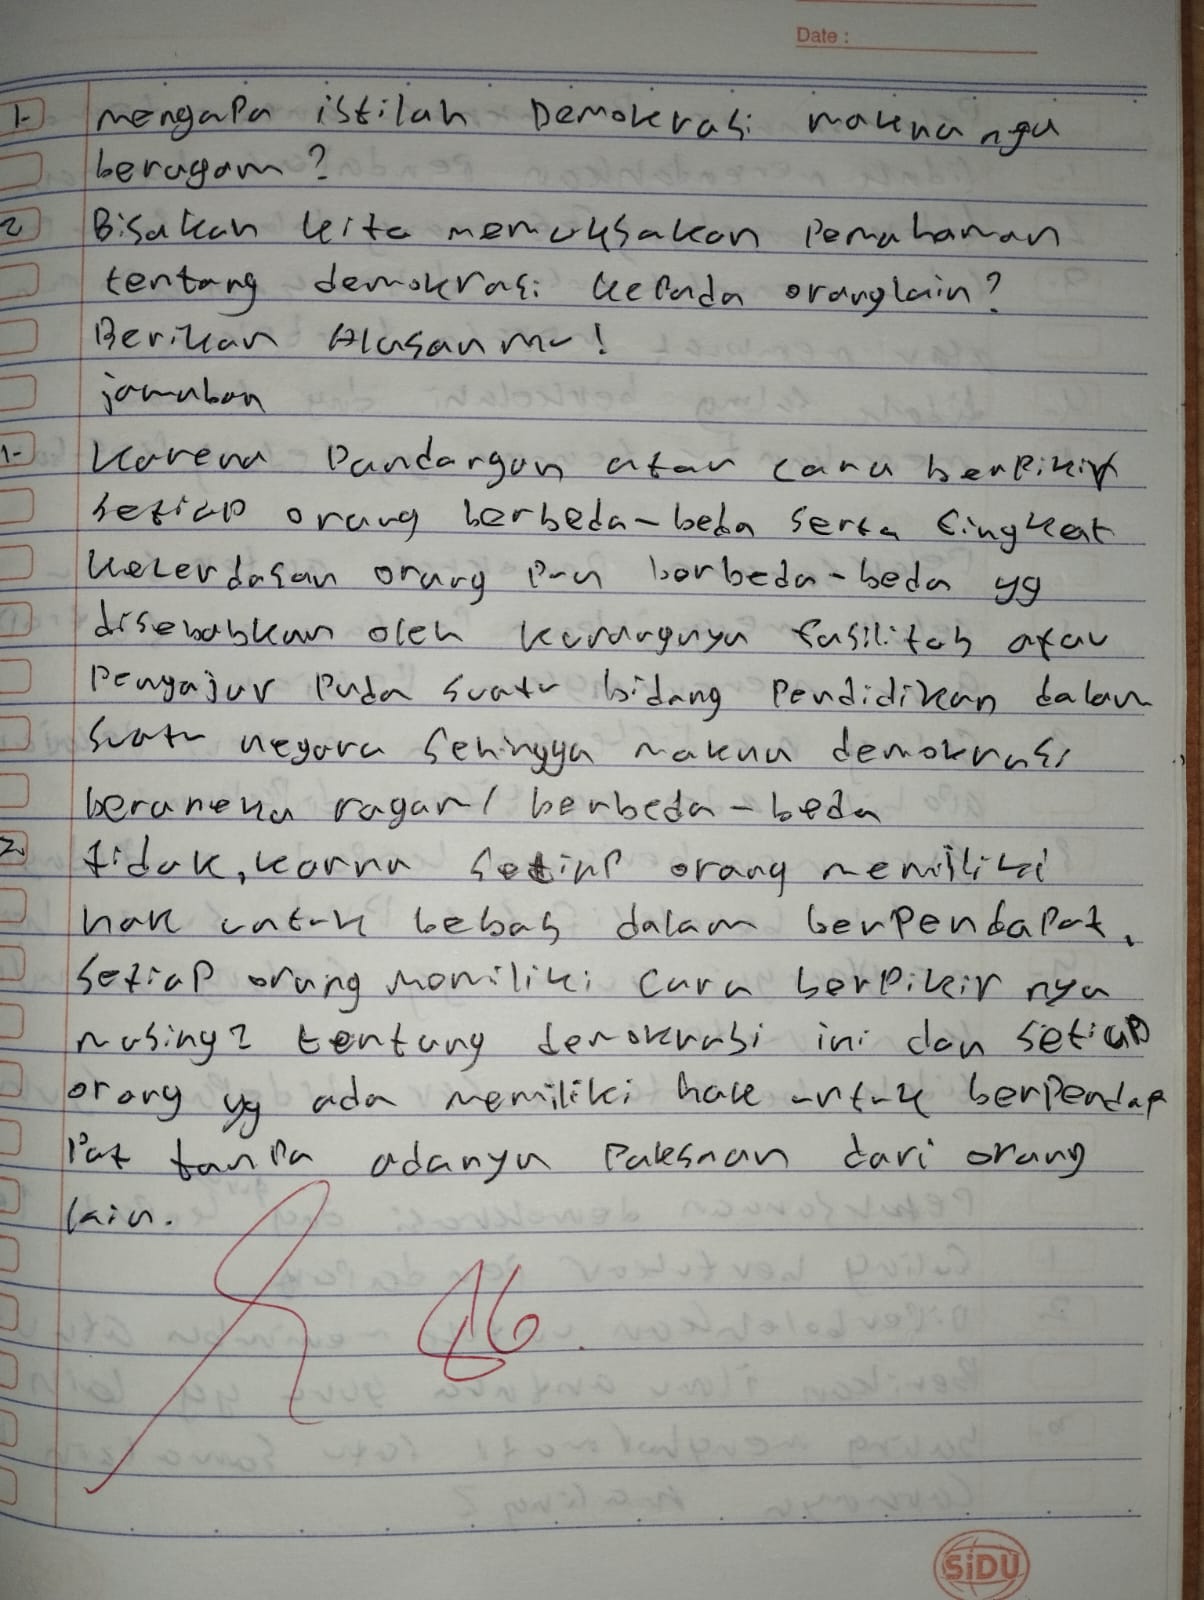 Date :
1. mengapa istilah Demokrasi maknanya
beragam?
2 Bisakah kita memaksakan Pemahaman
tentang demokrasi kepada oranglain?
Berikan Alasanmu!
jawaban
1. Karena Pandangan atau cara berpikir
setiap orang berbeda-beda serta tingkat
kecerdasan orang pun berbeda-beda yg
disebabkan oleh kurangnya fasilitas atau
Pengajar pada suatu bidang Pendidikan dalam
suatu negara sehingga makna demokrasi
beraneka ragam / berbeda-beda
2. tidak, karna setiap orang memiliki
hak untuk bebas dalam berpendapat.
Setiap orang memiliki cara berpikir nya
masing2 tentang demokrasi ini dan setiap
orang yg ada memiliki hak untuk berpendap
Pat tanpa adanya Paksaan dari orang
lain.
SiDU